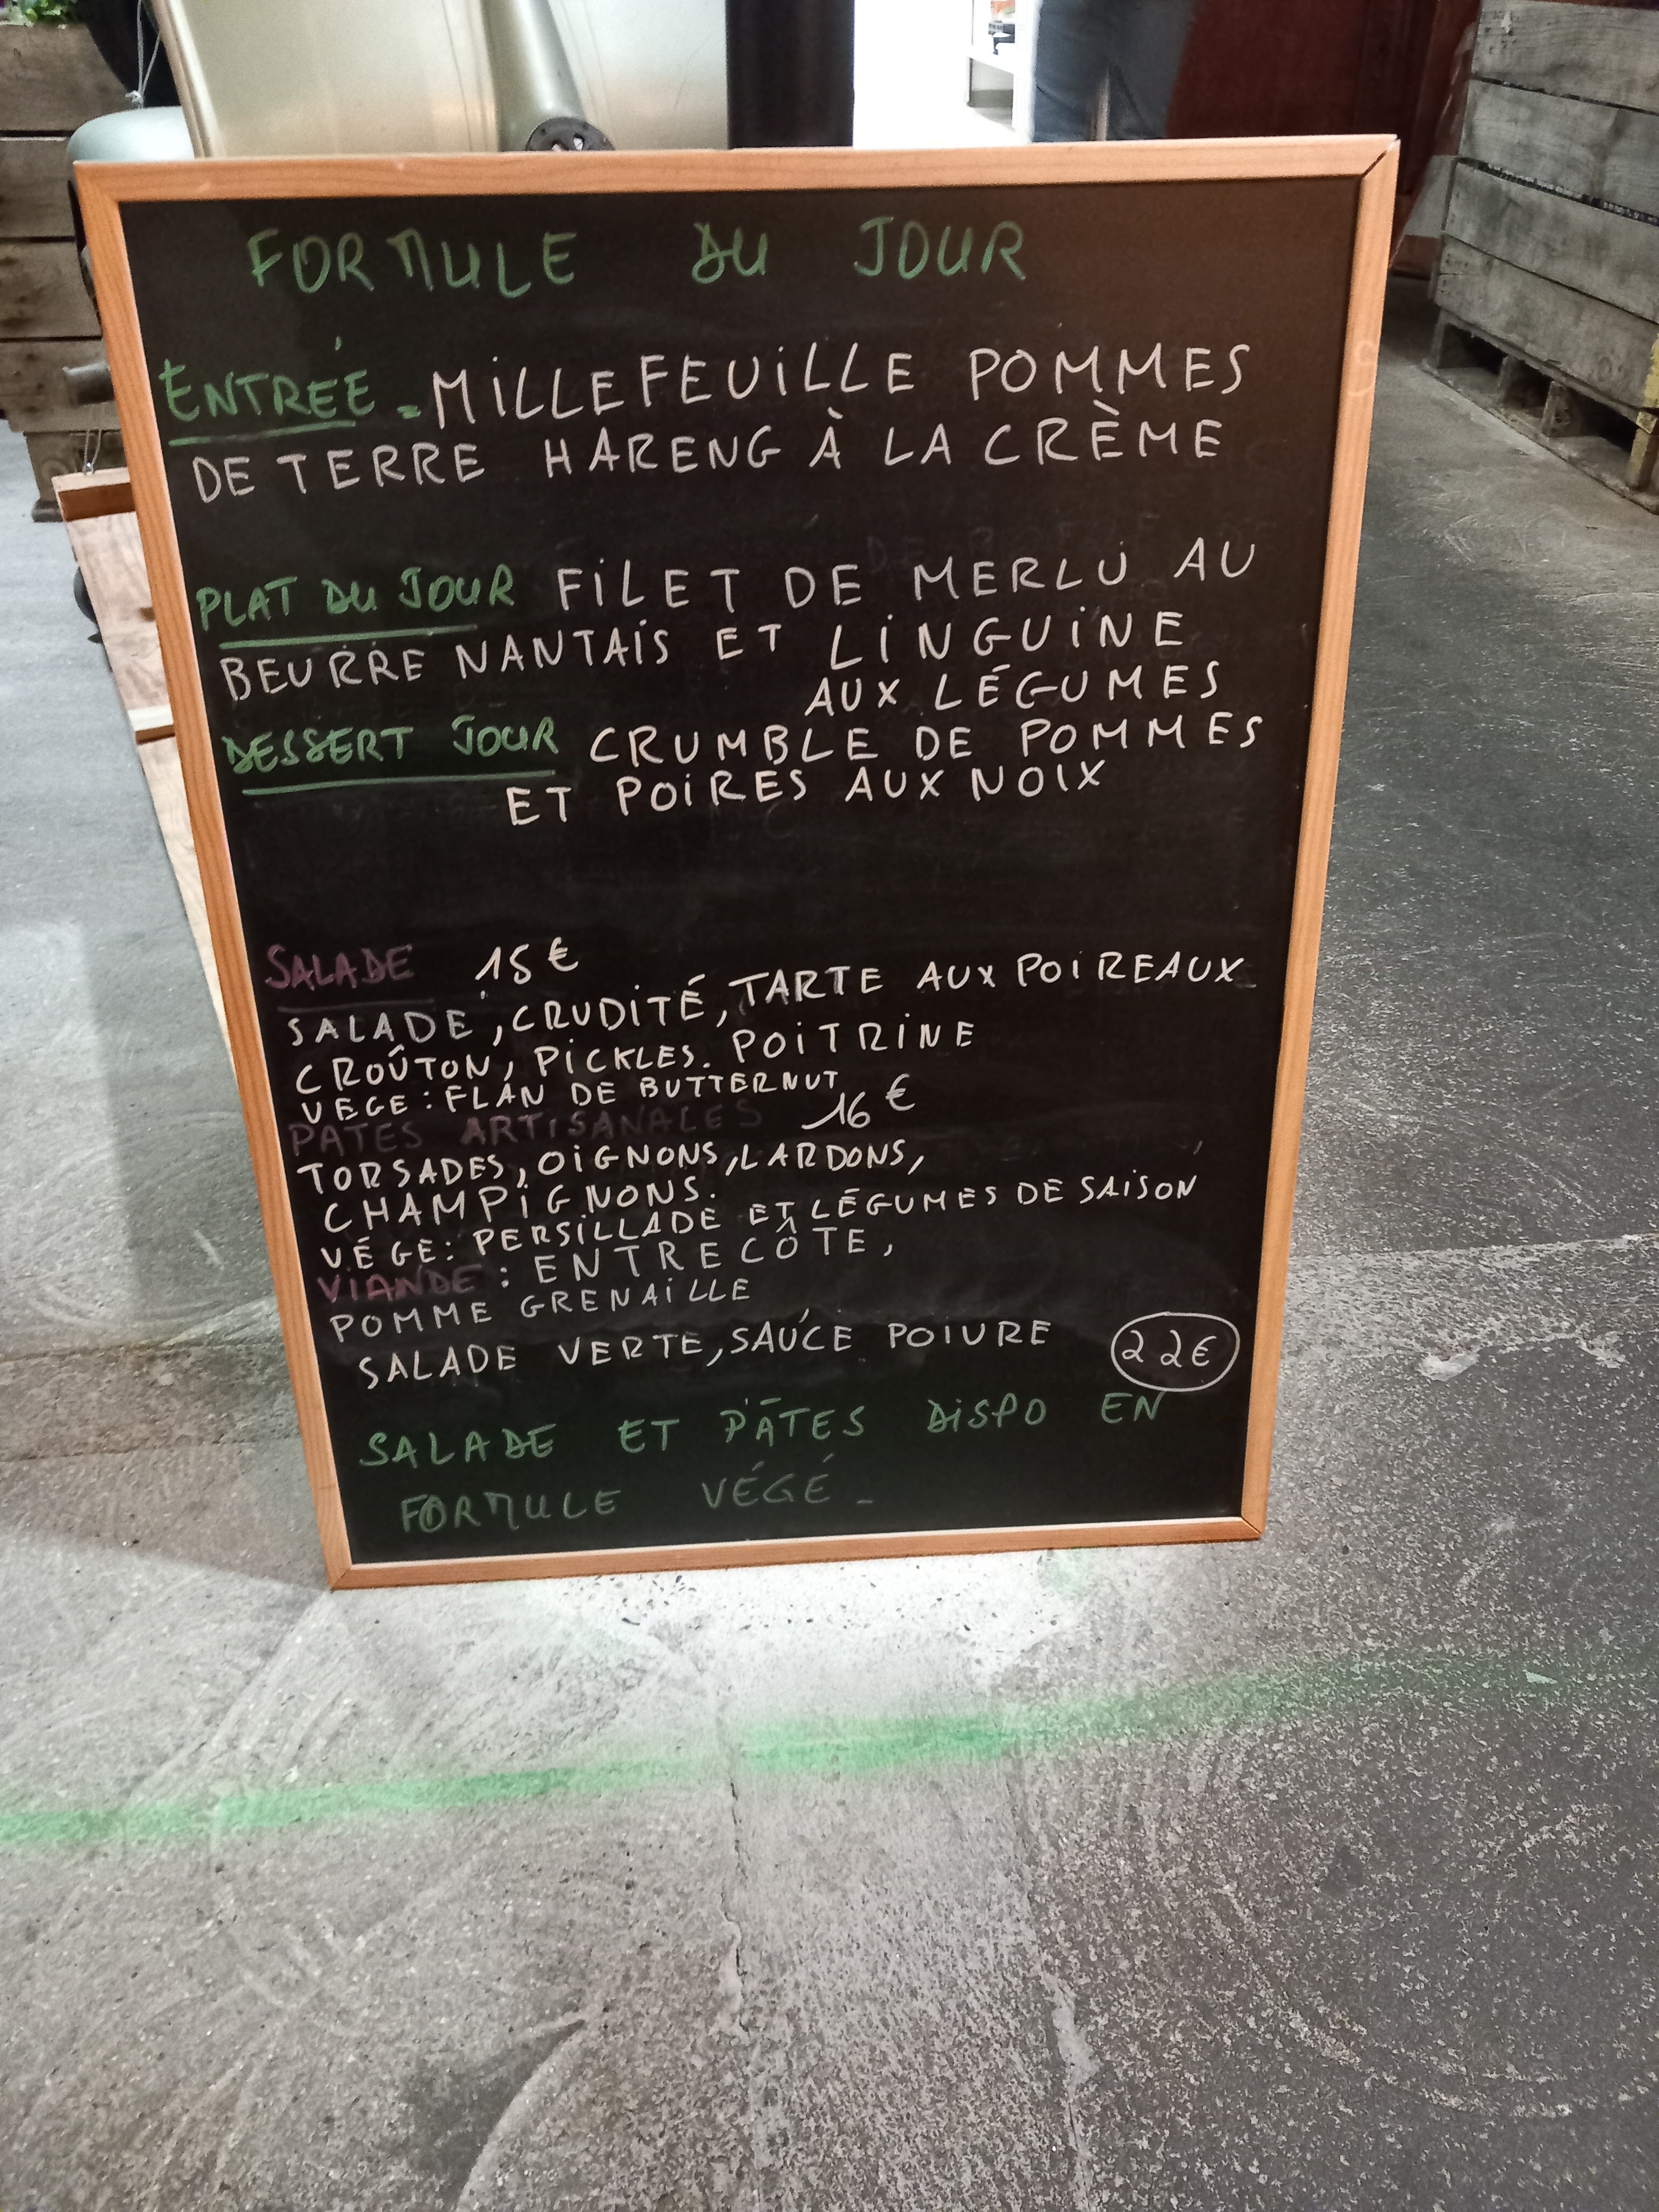 FORMULE DU JOUR
ENTRÉE = MILLEFEUILLE POMMES
DE TERRE HARENG À LA CRÈME
PLAT DU JOUR FILET DE MERLU AU
BEURRE NANTAIS ET LINGUINE
AUX LÉGUMES
DESSERT JOUR CRUMBLE DE POMMES
ET POIRES AUX NOIX
SALADE 15€
SALADE, CRUDITÉ, TARTE AUX POIREAUX
CROÛTON, PICKLES. POITRINE
VEGE: FLAN DE BUTTERNUT
PATES ARTISANALES 16€
TORSADES, OIGNONS, LARDONS,
CHAMPIGNONS.
VÉGE: PERSILLADE ET LÉGUMES DE SAISON
VIANDE: ENTRECÔTE,
POMME GRENAILLE
SALADE VERTE, SAUCE POIVRE 22€
SALADE ET PÂTES DISPO EN
FORMULE VÉGÉ-